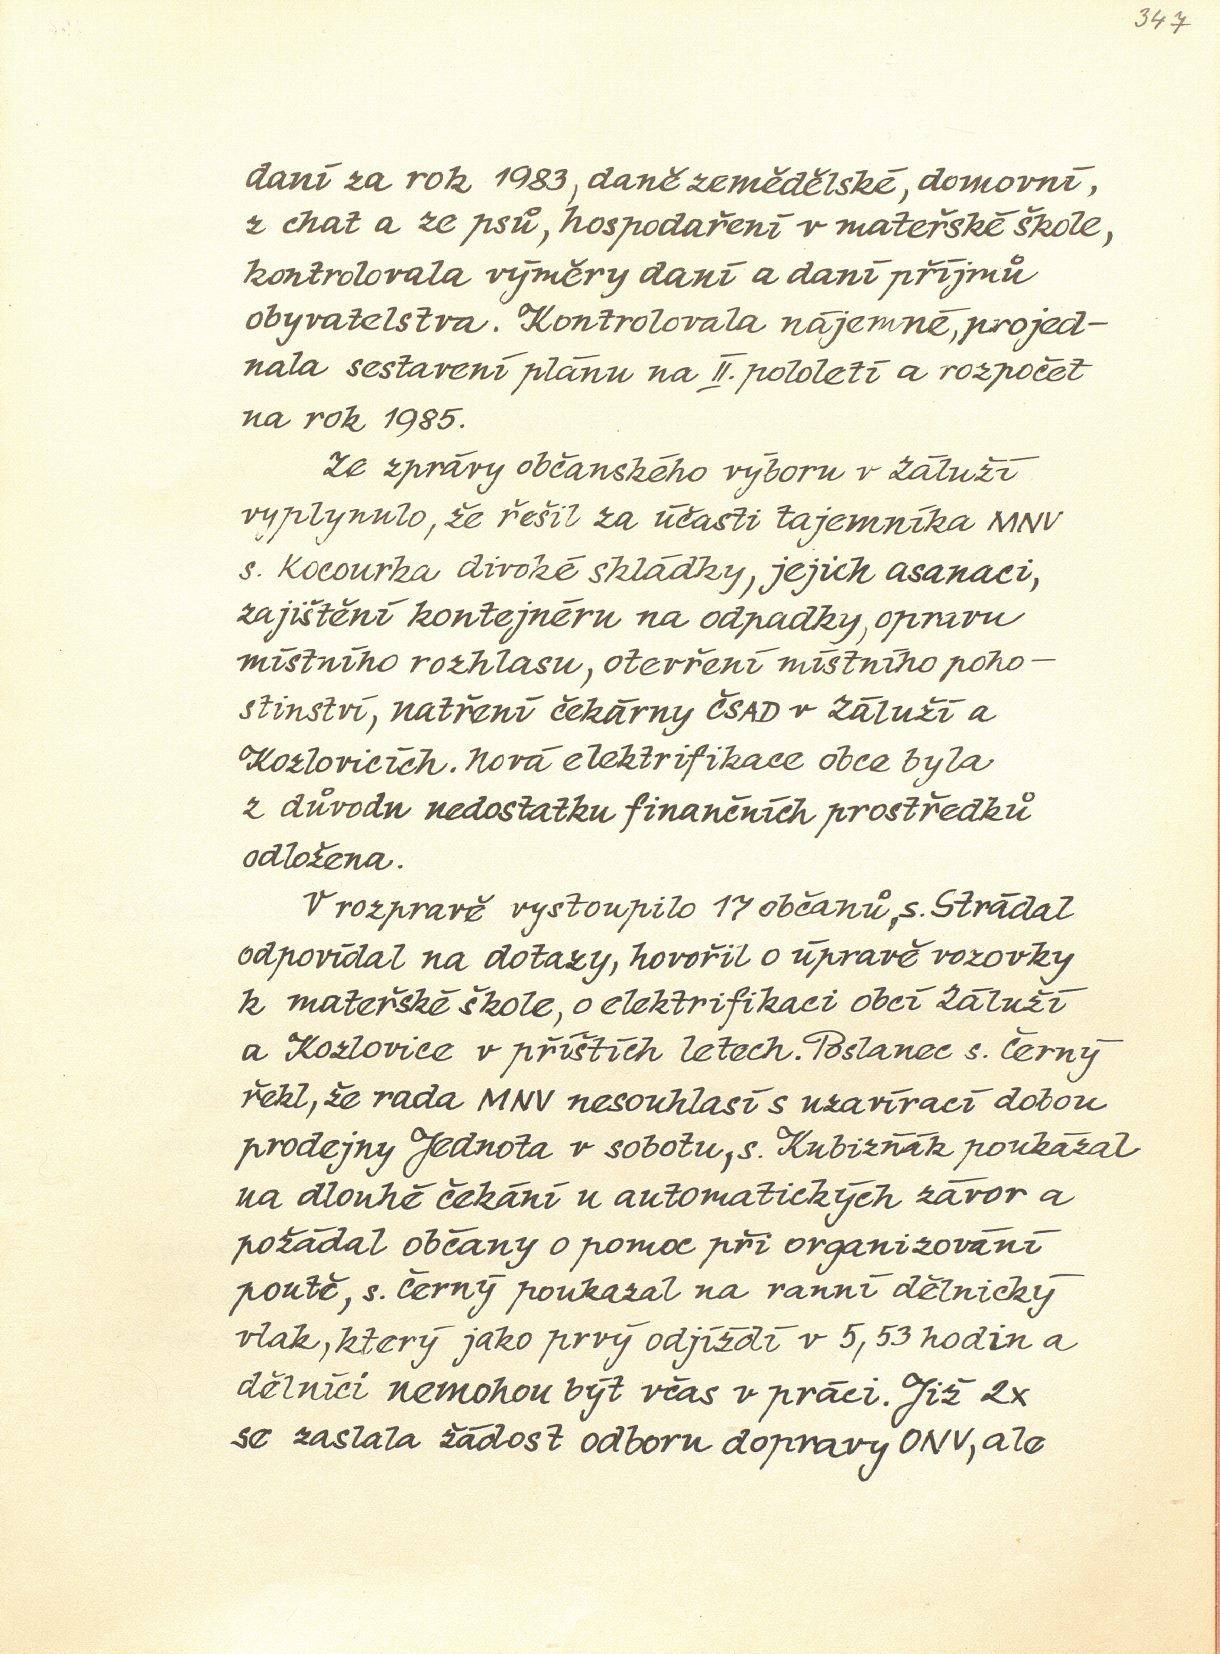 347
daní za rok 1983, daně zemědělské, domovní,
z chat a ze psů, hospodaření v mateřské škole,
kontrolovala výměry daní a daní příjmů
obyvatelstva. Kontrolovala nájemné, projed-
nala sestavení plánu na II. pololetí a rozpočet
na rok 1985.
Ze zprávy občanského výboru v Záluží
vyplynulo, že řešil za účasti tajemníka MNV
s. Kocourka divoké skládky, jejich asanaci,
zajištění kontejnéru na odpadky, opravu
místního rozhlasu, otevření místního poho-
stinství, natření čekárny ČSAD v Záluží a
Kozlovicích. Nová elektrifikace obce byla
z důvodu nedostatku finančních prostředků
odložena.
V rozpravě vystoupilo 17 občanů, s. Strádal
odpovídal na dotazy, hovořil o úpravě vozovky
k mateřské škole, o elektrifikaci obcí Záluží
a Kozlovice v příštích letech. Poslanec s. Černý
řekl, že rada MNV nesouhlasí s uzavírací dobou
prodejny Jednota v sobotu, s. Kubizňák poukázal
na dlouhé čekání u automatických závor a
požádal občany o pomoc při organizování
poutě, s. Černý poukazal na ranní dělnický
vlak, který jako prvý odjíždí v 5,53 hodin a
dělníci nemohou být včas v práci. Již 2x
se zaslala žádost odboru dopravy ONV, ale